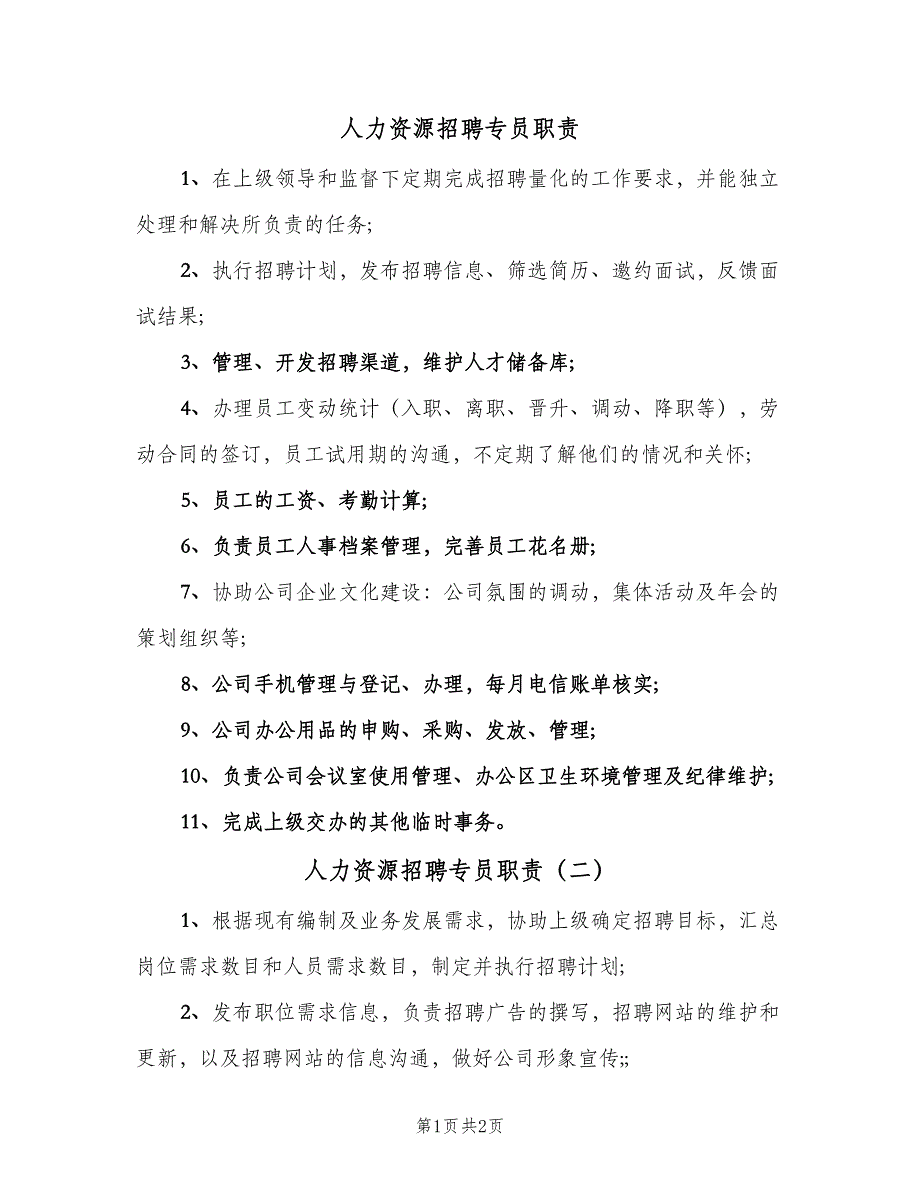 人力资源招聘专员职责
1、在上级领导和监督下定期完成招聘量化的工作要求，并能独立
处理和解决所负责的任务;
2、执行招聘计划，发布招聘信息、筛选简历、邀约面试，反馈面
试结果;
3、管理、开发招聘渠道，维护人才储备库;
4、办理员工变动统计（入职、离职、晋升、调动、降职等），劳
动合同的签订，员工试用期的沟通，不定期了解他们的情况和关怀;
5、员工的工资、考勤计算;
6、负责员工人事档案管理，完善员工花名册;
7、协助公司企业文化建设：公司氛围的调动，集体活动及年会的
策划组织等;
8、公司手机管理与登记、办理，每月电信账单核实;
9、公司办公用品的申购、采购、发放、管理;
10、负责公司会议室使用管理、办公区卫生环境管理及纪律维护;
11、完成上级交办的其他临时事务。
人力资源招聘专员职责（二）
1、根据现有编制及业务发展需求，协助上级确定招聘目标，汇总
岗位需求数目和人员需求数目，制定并执行招聘计划;
2、发布职位需求信息，负责招聘广告的撰写，招聘网站的维护和
更新，以及招聘网站的信息沟通，做好公司形象宣传;;
第1页共2页